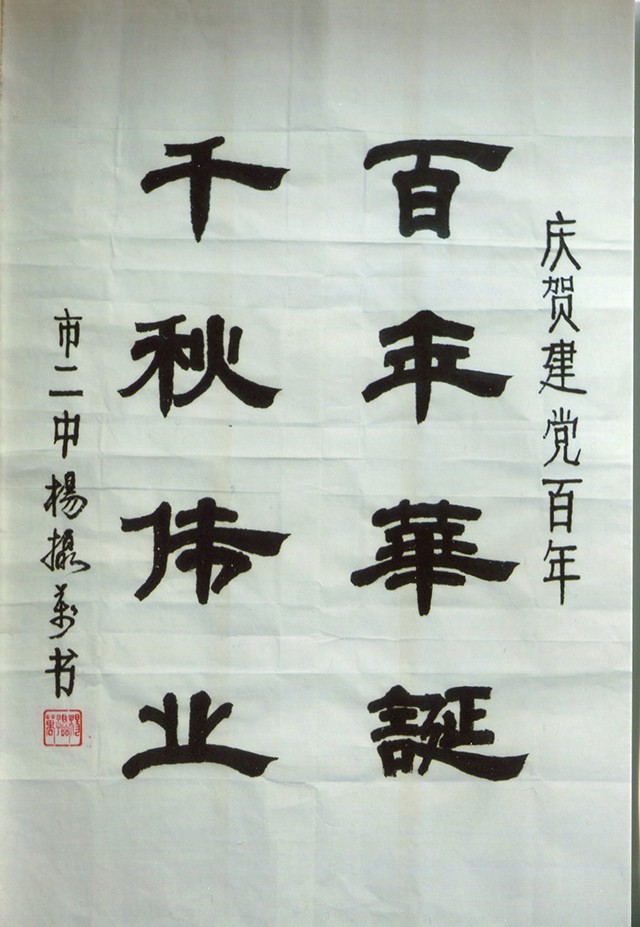 庆贺建党百年
百年華誕
千秋伟业
市二中杨摄万书